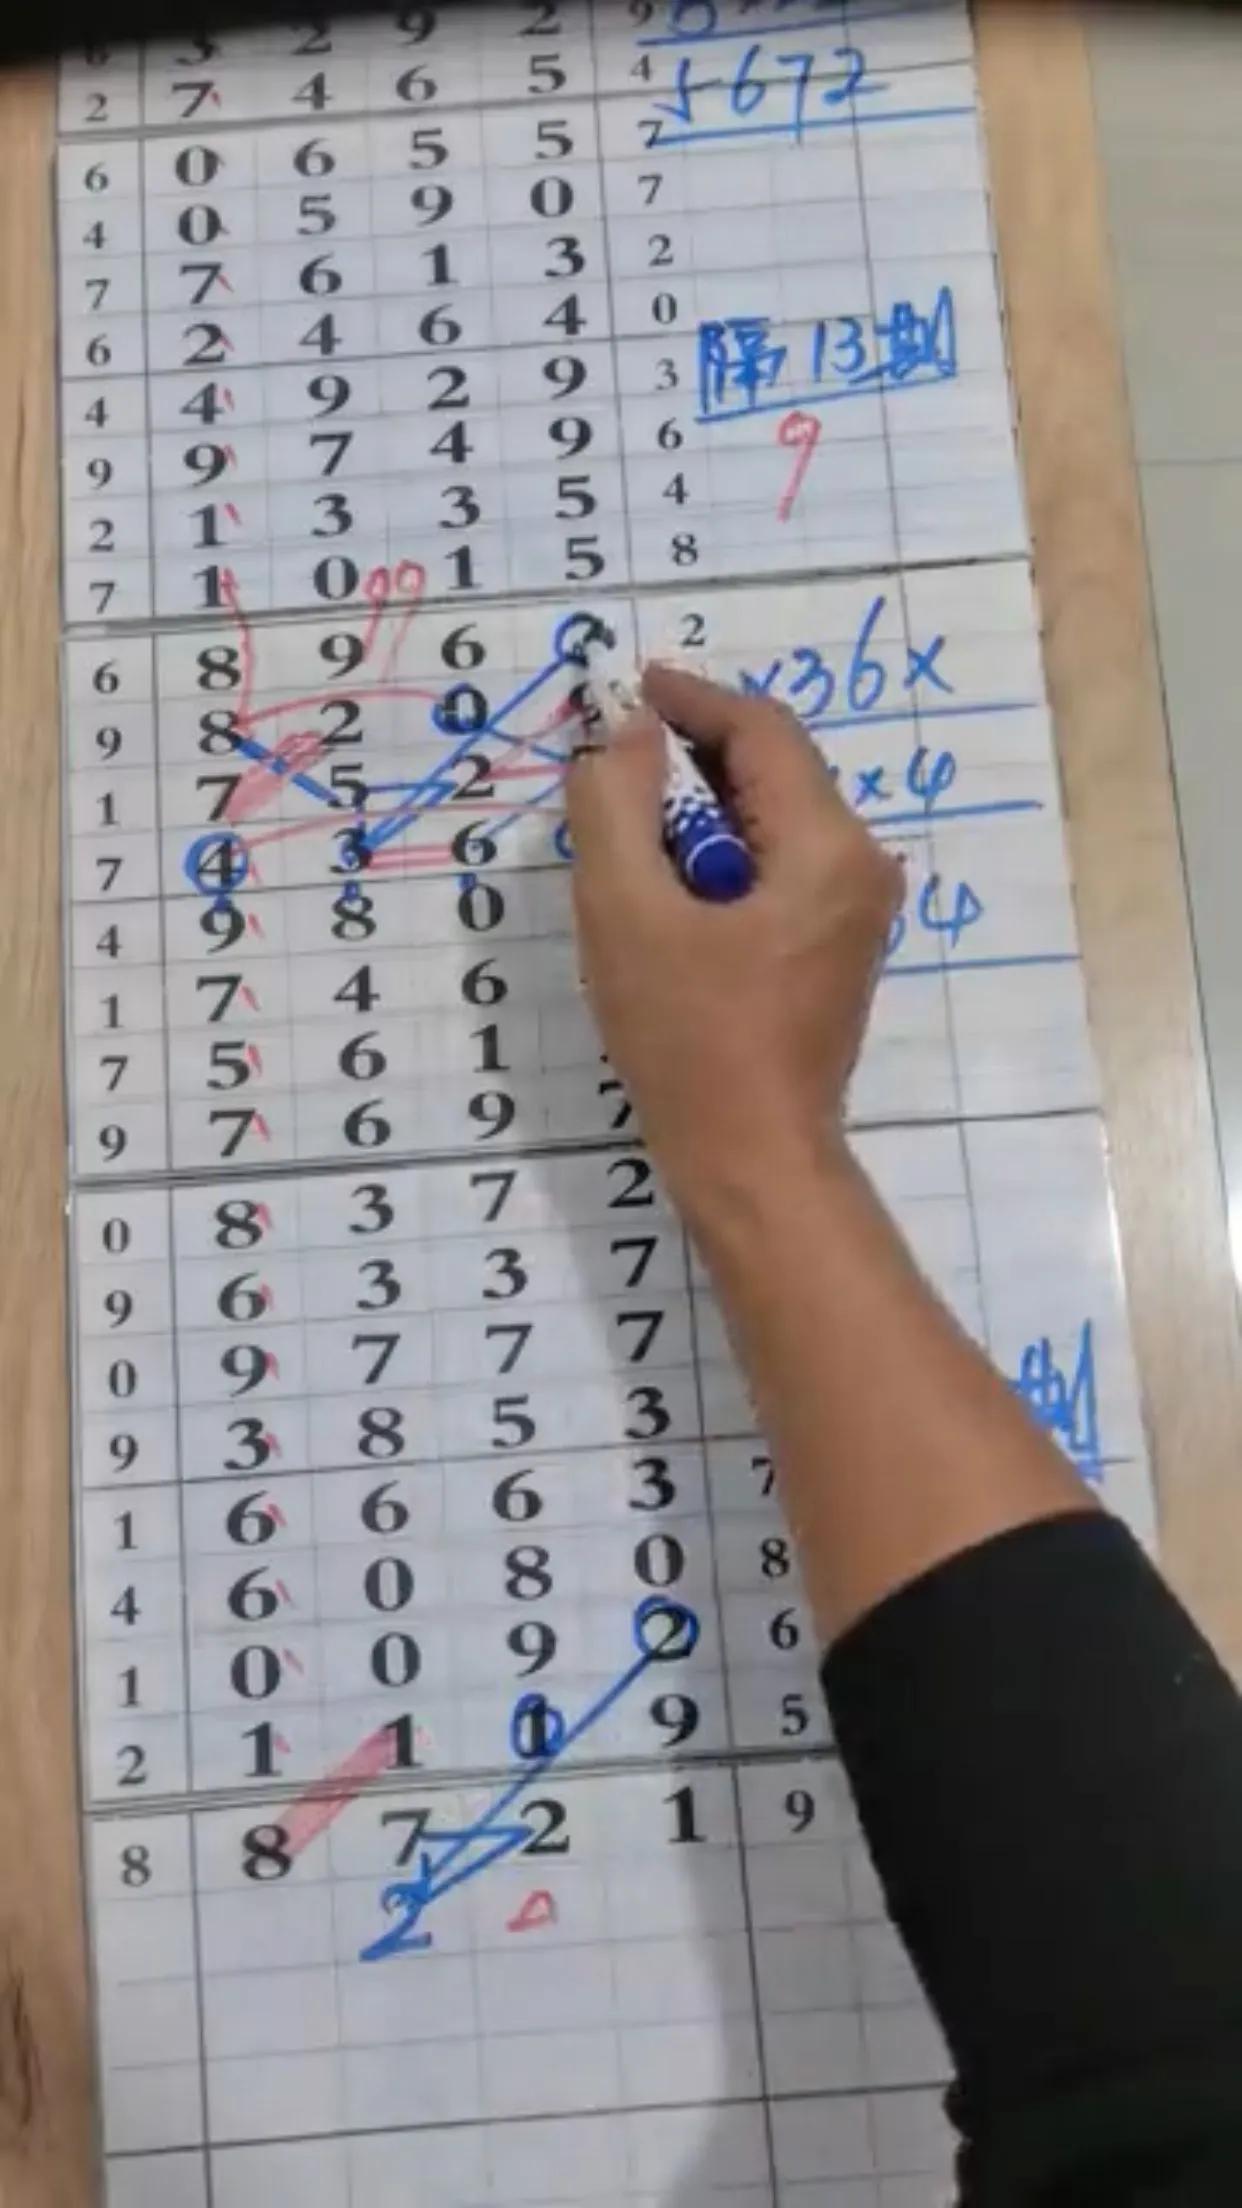 3 2 9 2 9
2 7 4 6 5 4 5672
6 0 6 5 5 7
4 0 5 9 0 7
7 7 6 1 3 2
6 2 4 6 4 0
隔13期
4 4 9 2 9 3
9 9 7 4 9 6 9
2 1 3 3 5 4
7 1 0 1 5 8
99
6 8 9 6 2 2 ×36×
9 8 2 0
1 7 5 2 ×4
7 4 3 6
4 9 8 0 4
1 7 4 6
7 5 6 1
9 7 6 9 7
0 8 3 7 2
9 6 3 3 7
0 9 7 7 7
期
9 3 8 5 3
1 6 6 6 3 7
4 6 0 8 0 8
1 0 0 9 2 6
2 1 1 1 9 5
8 8 7 2 1 9
2